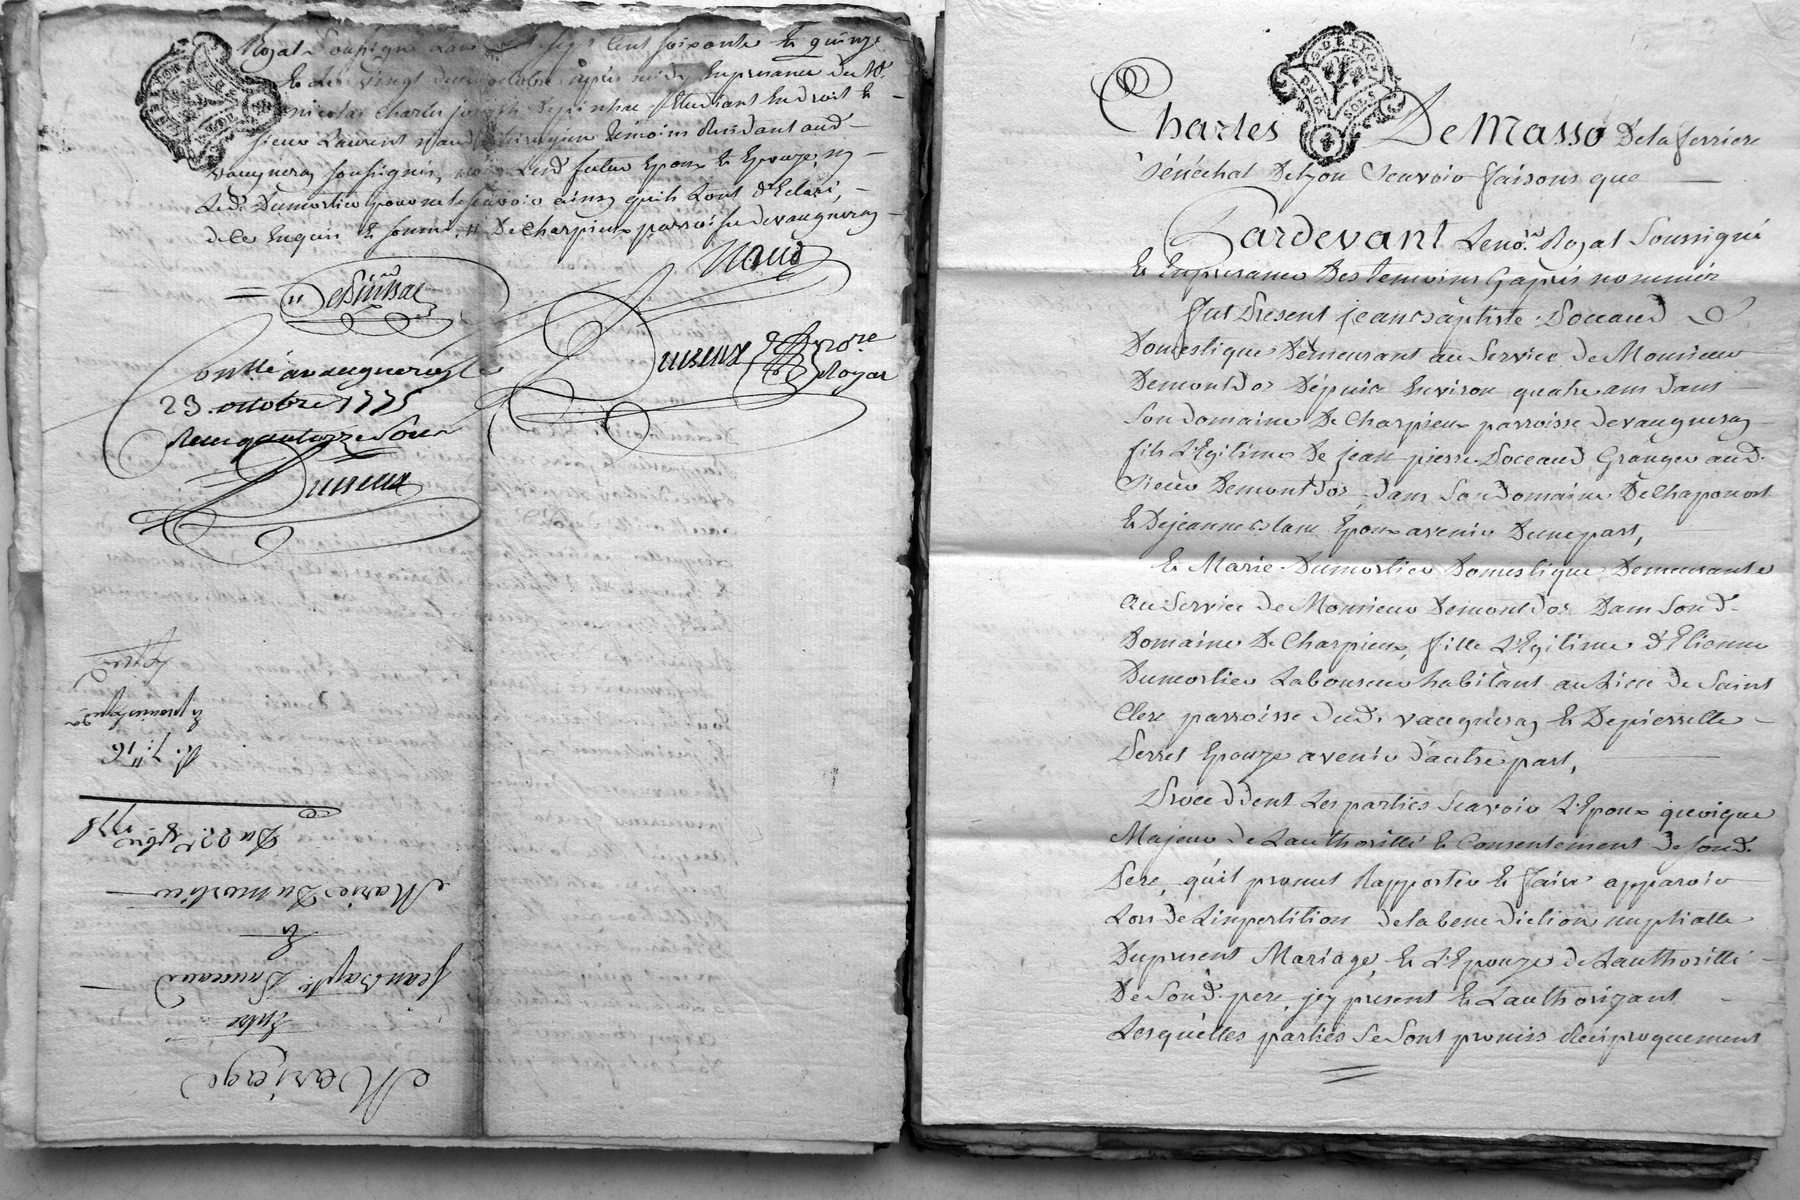 Royal Soussigné Lan mil sept Cent soixante Et quinze
Et Le vingt deux octobre après midy En presence du Sr.
nicolas Charles joseph Etudiant En droit Et
sieur Laurent naud Chirurgien temoins Residant aud.
vaugneray soussignés, Lesd. futur Epoux Et Epouze, ny
Led. Dumortier pour ne le scavoir ainsy quils L'ont déclaré,
de ce Enquis Et sommés. De Charpieux parroisse de vaugneray
Naud
Duiseux Nore.
Royal
Conllé a vaugneray le
23. octobre 1775
Reçu quatorze Sous
Duiseux
Mariage
Entre
Jean Bapte. Douceaud
Et
Marie Dumortier
Du 22e. 8bre 1775
Charles De Masso De la ferriere
Sénéchal De Lyon Scavoir faisons que
Pardevant Le nore. Royal Soussigné
Et En presence Des temoins Cy après nommés
fut Present jean Baptiste Doceaud
Domestique Demeurant au Service de Monsieur
Demontd'or Depuis Environ quatre ans dans
son domaine De Charpieux parroisse de vaugneray
fils L'Egitime De jean pierre Doceaud Granger aud.
sieur Demontd'or dans son domaine De Chaponost
Et De jeanne Epoux avenir D'une part,
Et Marie Dumortier Domestique Demeurante
au Service de Monsieur Demontd'or Dans Sond.
Domaine De Charpieux, fille L'Egitime d'Etienne
Dumortier Laboureur habitant au Lieu de Saint
Clere parroisse dud. vaugneray Et De pierrette
Perret Epouze avenir d'autre part,
Proceddent Les parties Scavoir L'Epoux quoique
Majeur de L'authorité Et Consentement de sond.
Pere, qu'il promet Rapporter Et faire apparoir
Lors de L'inpertition de la benediction nuptialle
Du present Mariage, Et L'Epouze de L'authorité
De Sond. pere, jcy present Et L'authorizant
Lesquelles parties Se Sont promis Reciproquement